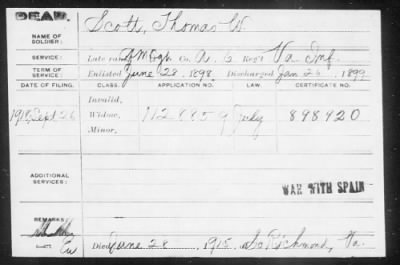 DEAD.
Scott, Thomas W.
NAME OF
SOLDIER:
SERVICE: Late rank, Co. A, 6 Reg't Va. Inf.
TERM OF
SERVICE: Enlisted June 28, 1898, Discharged Jan 26, 1899
DATE OF FILING. CLASS. APPLICATION NO. LAW. CERTIFICATE NO.
Invalid,
1918, Sept 26 Widow, 1128859 July 898920
Minor,
ADDITIONAL
SERVICES:
WAR WITH SPAIN
REMARKS:
Died June 28, 1915, So Richmond, Va.